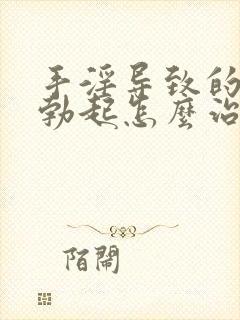 手淫导致的
勃起怎麼治
陌閙